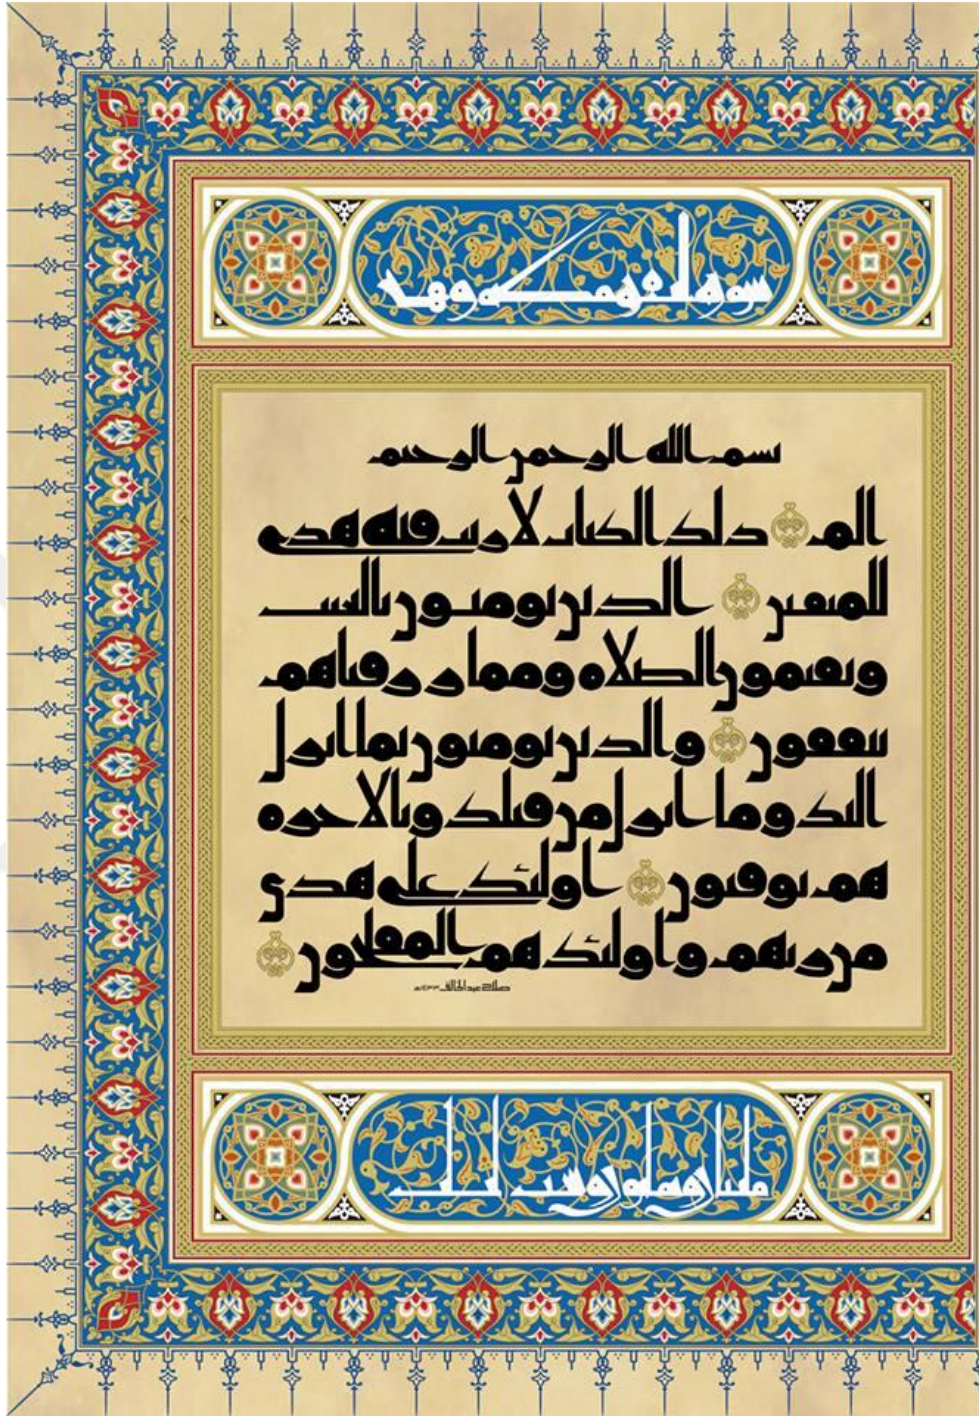 سورة
بسم الله الرحمن الرحيم
الم ذلك الكتاب لا ريب فيه هدى
للمتقين الذين يومنون بالغيب
ويقيمون الصلاه ومما رزقناهم
ينفقون والذين يومنون بما انزل
اليك وما انزل من قبلك وبالاخره
هم يوقنون اولئك على هدى
من ربهم واولئك هم المفلحون
صلاح عبدالخالق ١٤٣٣هـ